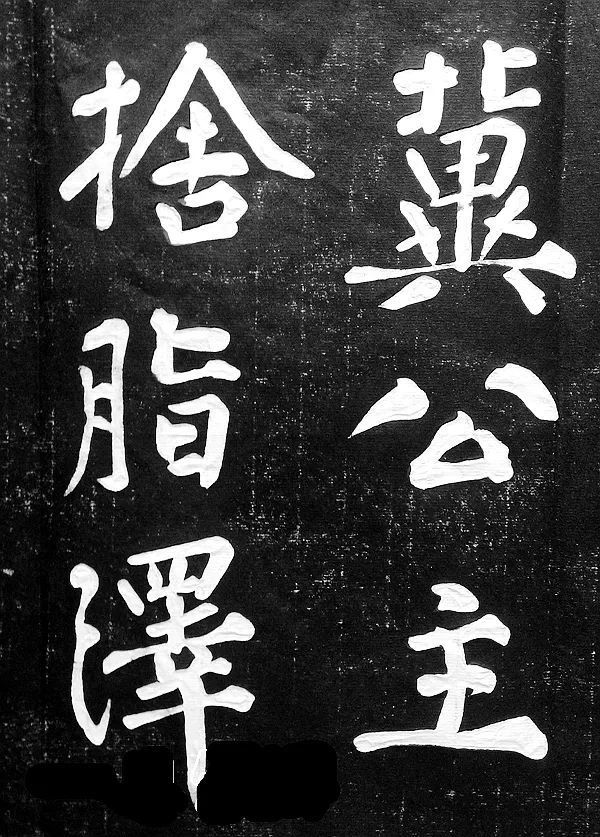 冀公主
捨脂澤